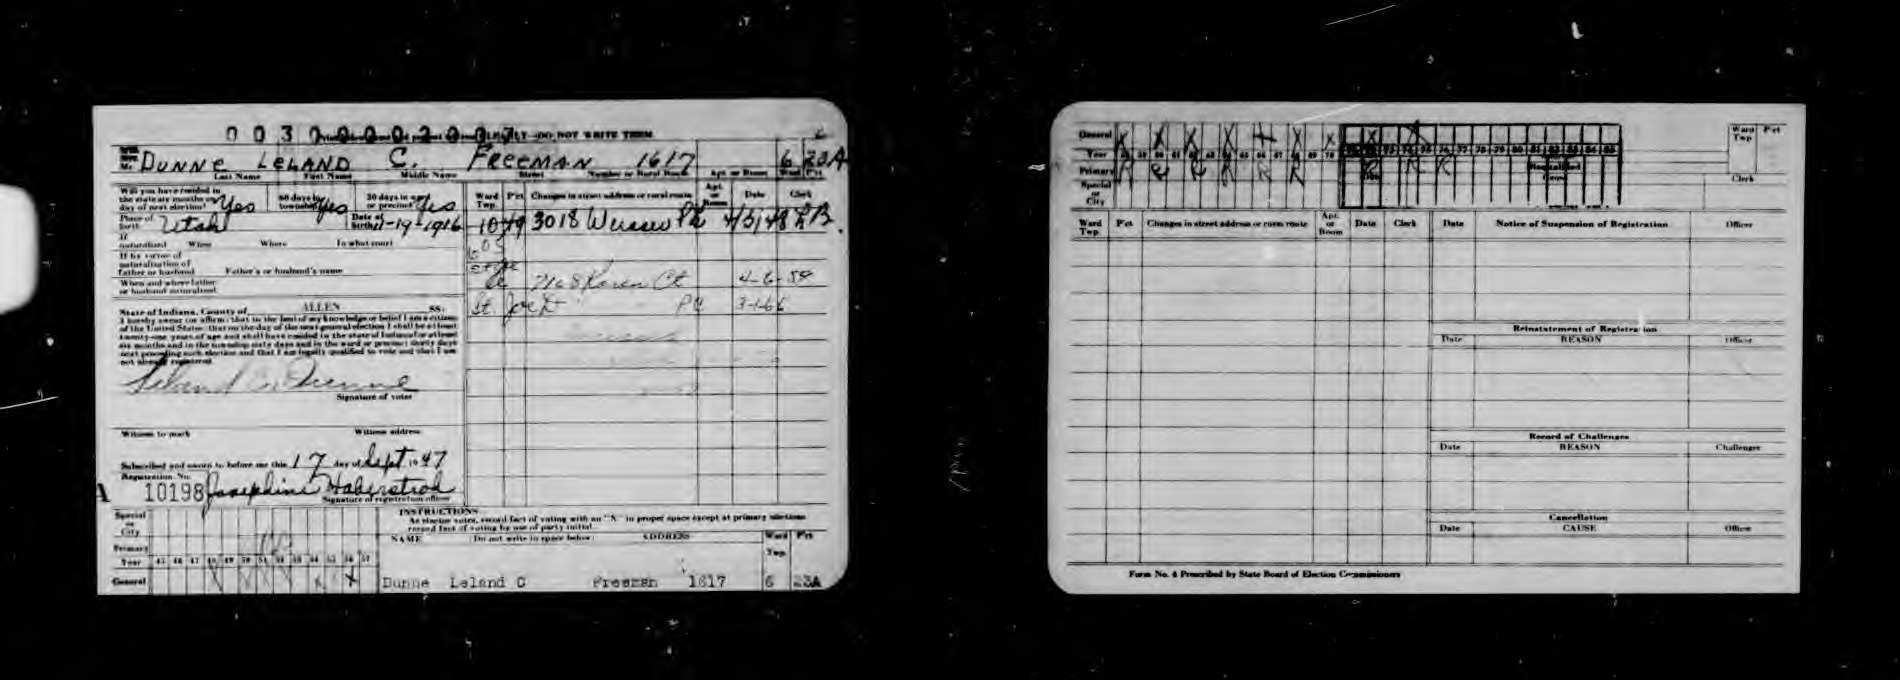 LEGIBLY—DO NOT WRITE TERM
DUNNE LELAND C. FREEMAN 1617 6 23A
Last Name First Name Middle Name Street Number or Rural Route Apt or Room Ward Pct
Will you have resided in
the state six months on
day of next election? Yes
60 days in
township? Yes
30 days in ward
or precinct? Yes
Place of
birth Utah
Date of
birth 11-19-1916
If
naturalized When Where To what court
If by virtue of
naturalization of
father or husband Father's or husband's name
When and where father
or husband naturalized
State of Indiana, County of ALLEN SS:
I hereby swear (or affirm) that to the best of my knowledge or belief I am a citizen
of the United States; that on the day of the next general election I shall be at least
twenty-one years of age and shall have resided in the state of Indiana for at least
six months and in the township sixty days and in the ward or precinct thirty days
next preceding such election and that I am legally qualified to vote and that I am
not already registered.
Leland C. Dunne
Signature of voter
Witness to mark Witness address
Subscribed and sworn to before me this 17 day of Sept 1947
Registration No.
10198 Josephine Haberstroh
Signature of registration officer
Ward
Twp. Pct Changes in street address or rural route Apt.
or
Room Date Clerk
10 49 3018 4/3/48
Karen Ct 4-6-54
St. Joe
Special
or
City
Primary
Year 45 46 47 48 49 50 51 52 53 54 55 56 57
General
INSTRUCTIONS
As elector votes, record fact of voting with an "X" in proper space except at primary elections
record fact of voting by use of party initial.
NAME Do not write in space below ADDRESS Ward
Twp. Pct
Dunne Leland C Freeman 1617 6 23A
General X X X X X X X X
Year 58 59 60 61 62 63 64 65 66 67 68 69 70 75 76 77 78 79 80 81 82 83 84 85
Primary R R R R R R R R R
Special
or
City
Ward
Twp. Pct
Clerk
Ward
Twp. Pct Changes in street address or rural route Apt.
or
Room Date Clerk
Date Notice of Suspension of Registration Officer
Reinstatement of Registration
Date REASON Officer
Record of Challenges
Date REASON Challenger
Cancellation
Date CAUSE Officer
Form No. 4 Prescribed by State Board of Election Commissioners